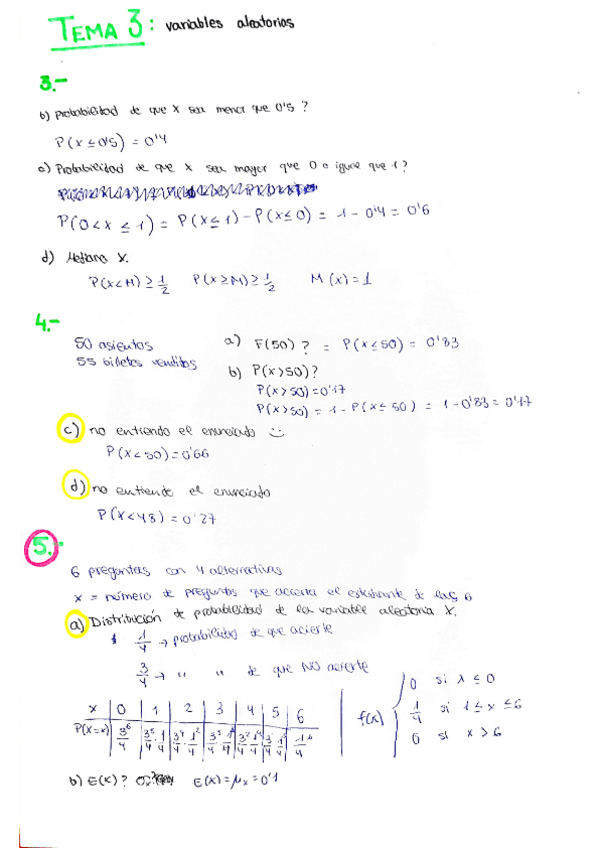 TEMA 3: variables aleatorias
3.-
b) Probabilidad de que X sea menor que 0'5?
P(X≤0'5) = 0'4
c) Probabilidad de que X sea mayor que 0 o igual que 1?
P(0<X≤1) = P(X≤1) - P(X≤0) = 1 - 0'4 = 0'6
d) Mediana X.
P(X<M) ≥ 1/2 P(X≥M) ≥ 1/2 M(x) = 1
4.-
50 asientos
55 billetes vendidos
a) F(50)? = P(X≤50) = 0'83
b) P(X>50)?
P(X>50) = 0'17
P(X>50) = 1 - P(X≤50) = 1 - 0'83 = 0'17
c) no entiendo el enunciado
P(X<50) = 0'66
d) no entiendo el enunciado
P(X<48) = 0'27
5.-
6 preguntas con 4 alternativas
X = número de preguntas que acierta el estudiante de las 6
a) Distribución de probabilidad de la variable aleatoria X.
1/4 → probabilidad de que acierte
3/4 → " " de que NO acierte
X 0 1 2 3 4 5 6
P(X=x)
f(x) { 0 si x ≤ 0
1/4 si 1 ≤ x ≤ 6
si x > 6
b) E(X)? E(X) = μx = 0'1